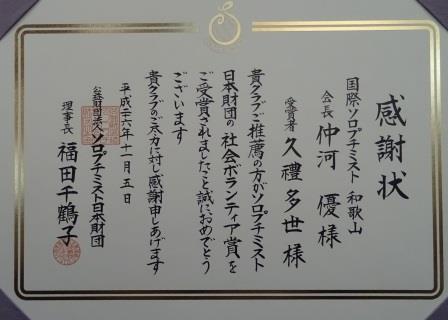 感謝状
国際ソロプチミスト 和歌山
会長 仲河 優様
受賞者 久禮多世様
貴クラブご推薦の方がソロプチミスト
日本財団の社会ボランティア賞を
ご受賞されましたこと誠におめでとう
ございます
貴クラブのご尽力に対し感謝申しあげます
平成二十六年十一月五日
公益財団法人ソロプチミスト日本財団
理事長 福田千鶴子